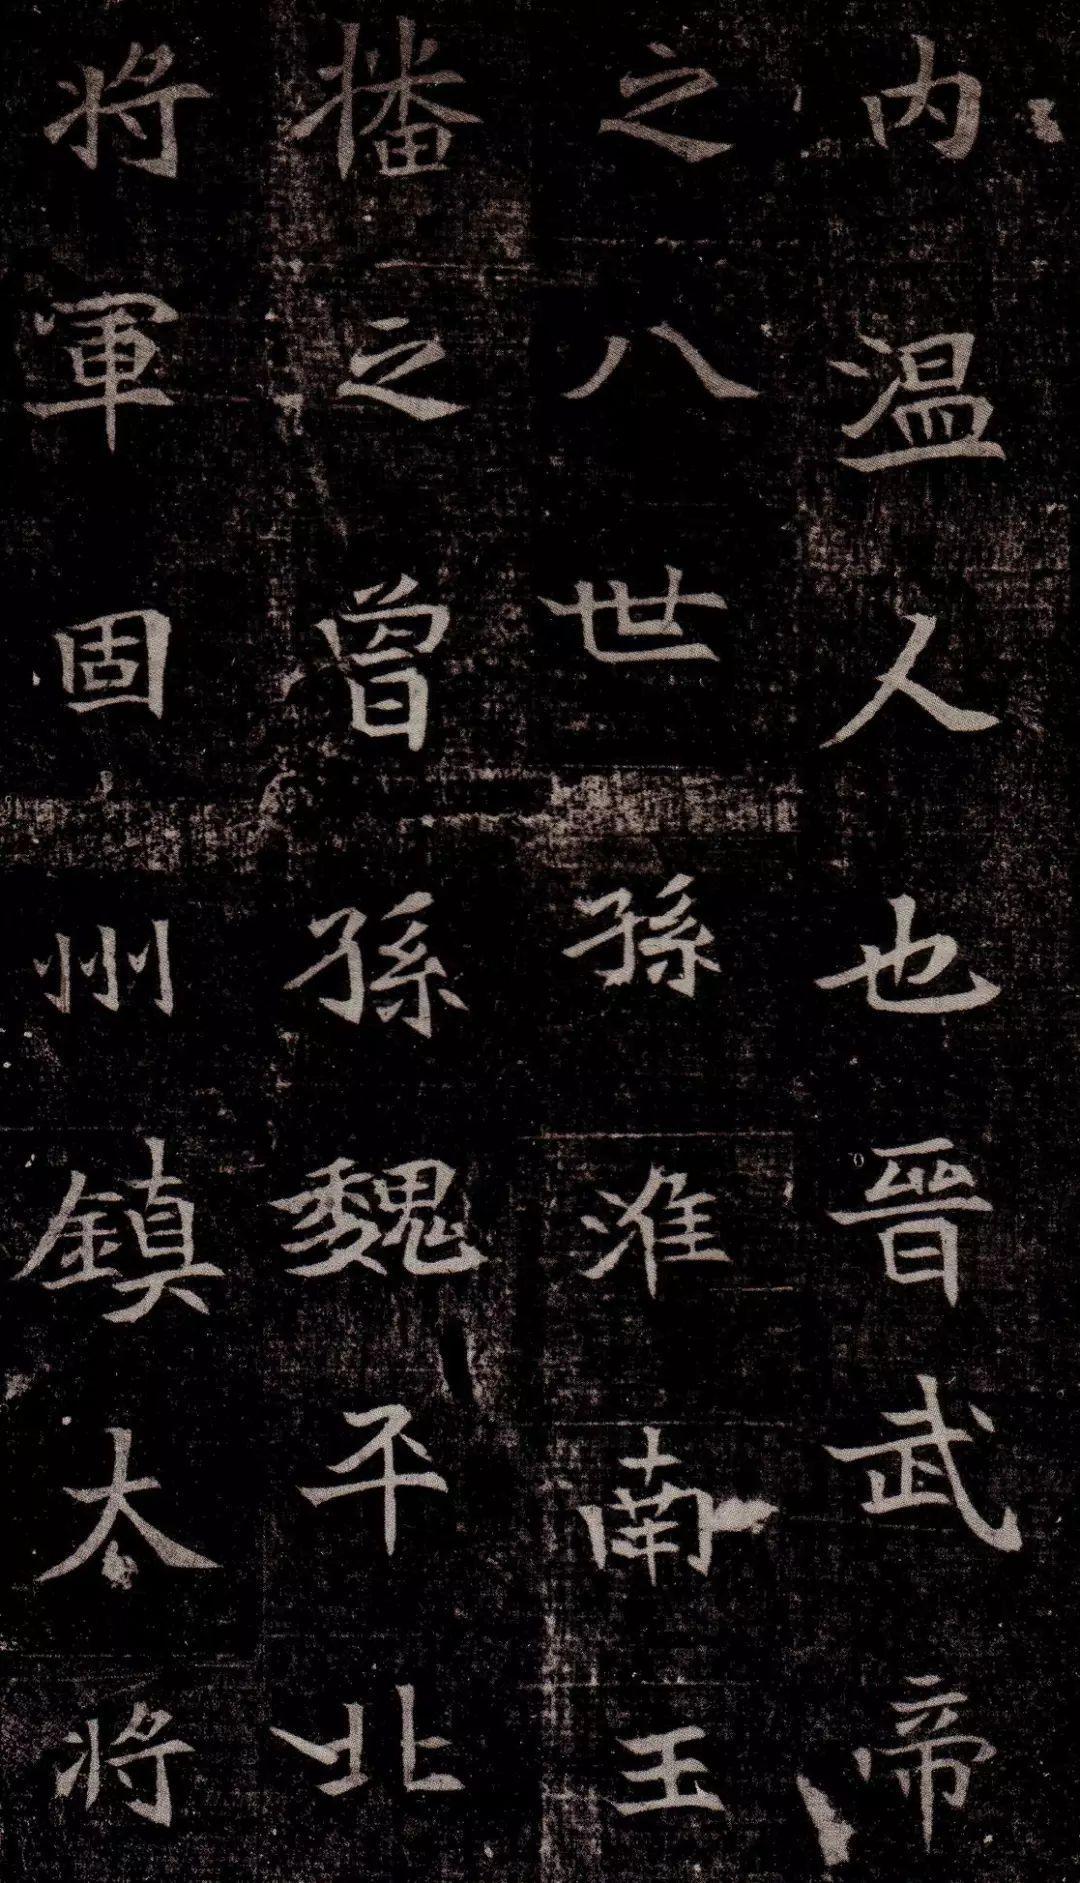 内温人也晉武帝
之八世孫淮南王
播之曾孫魏平北
将軍固州鎮大将